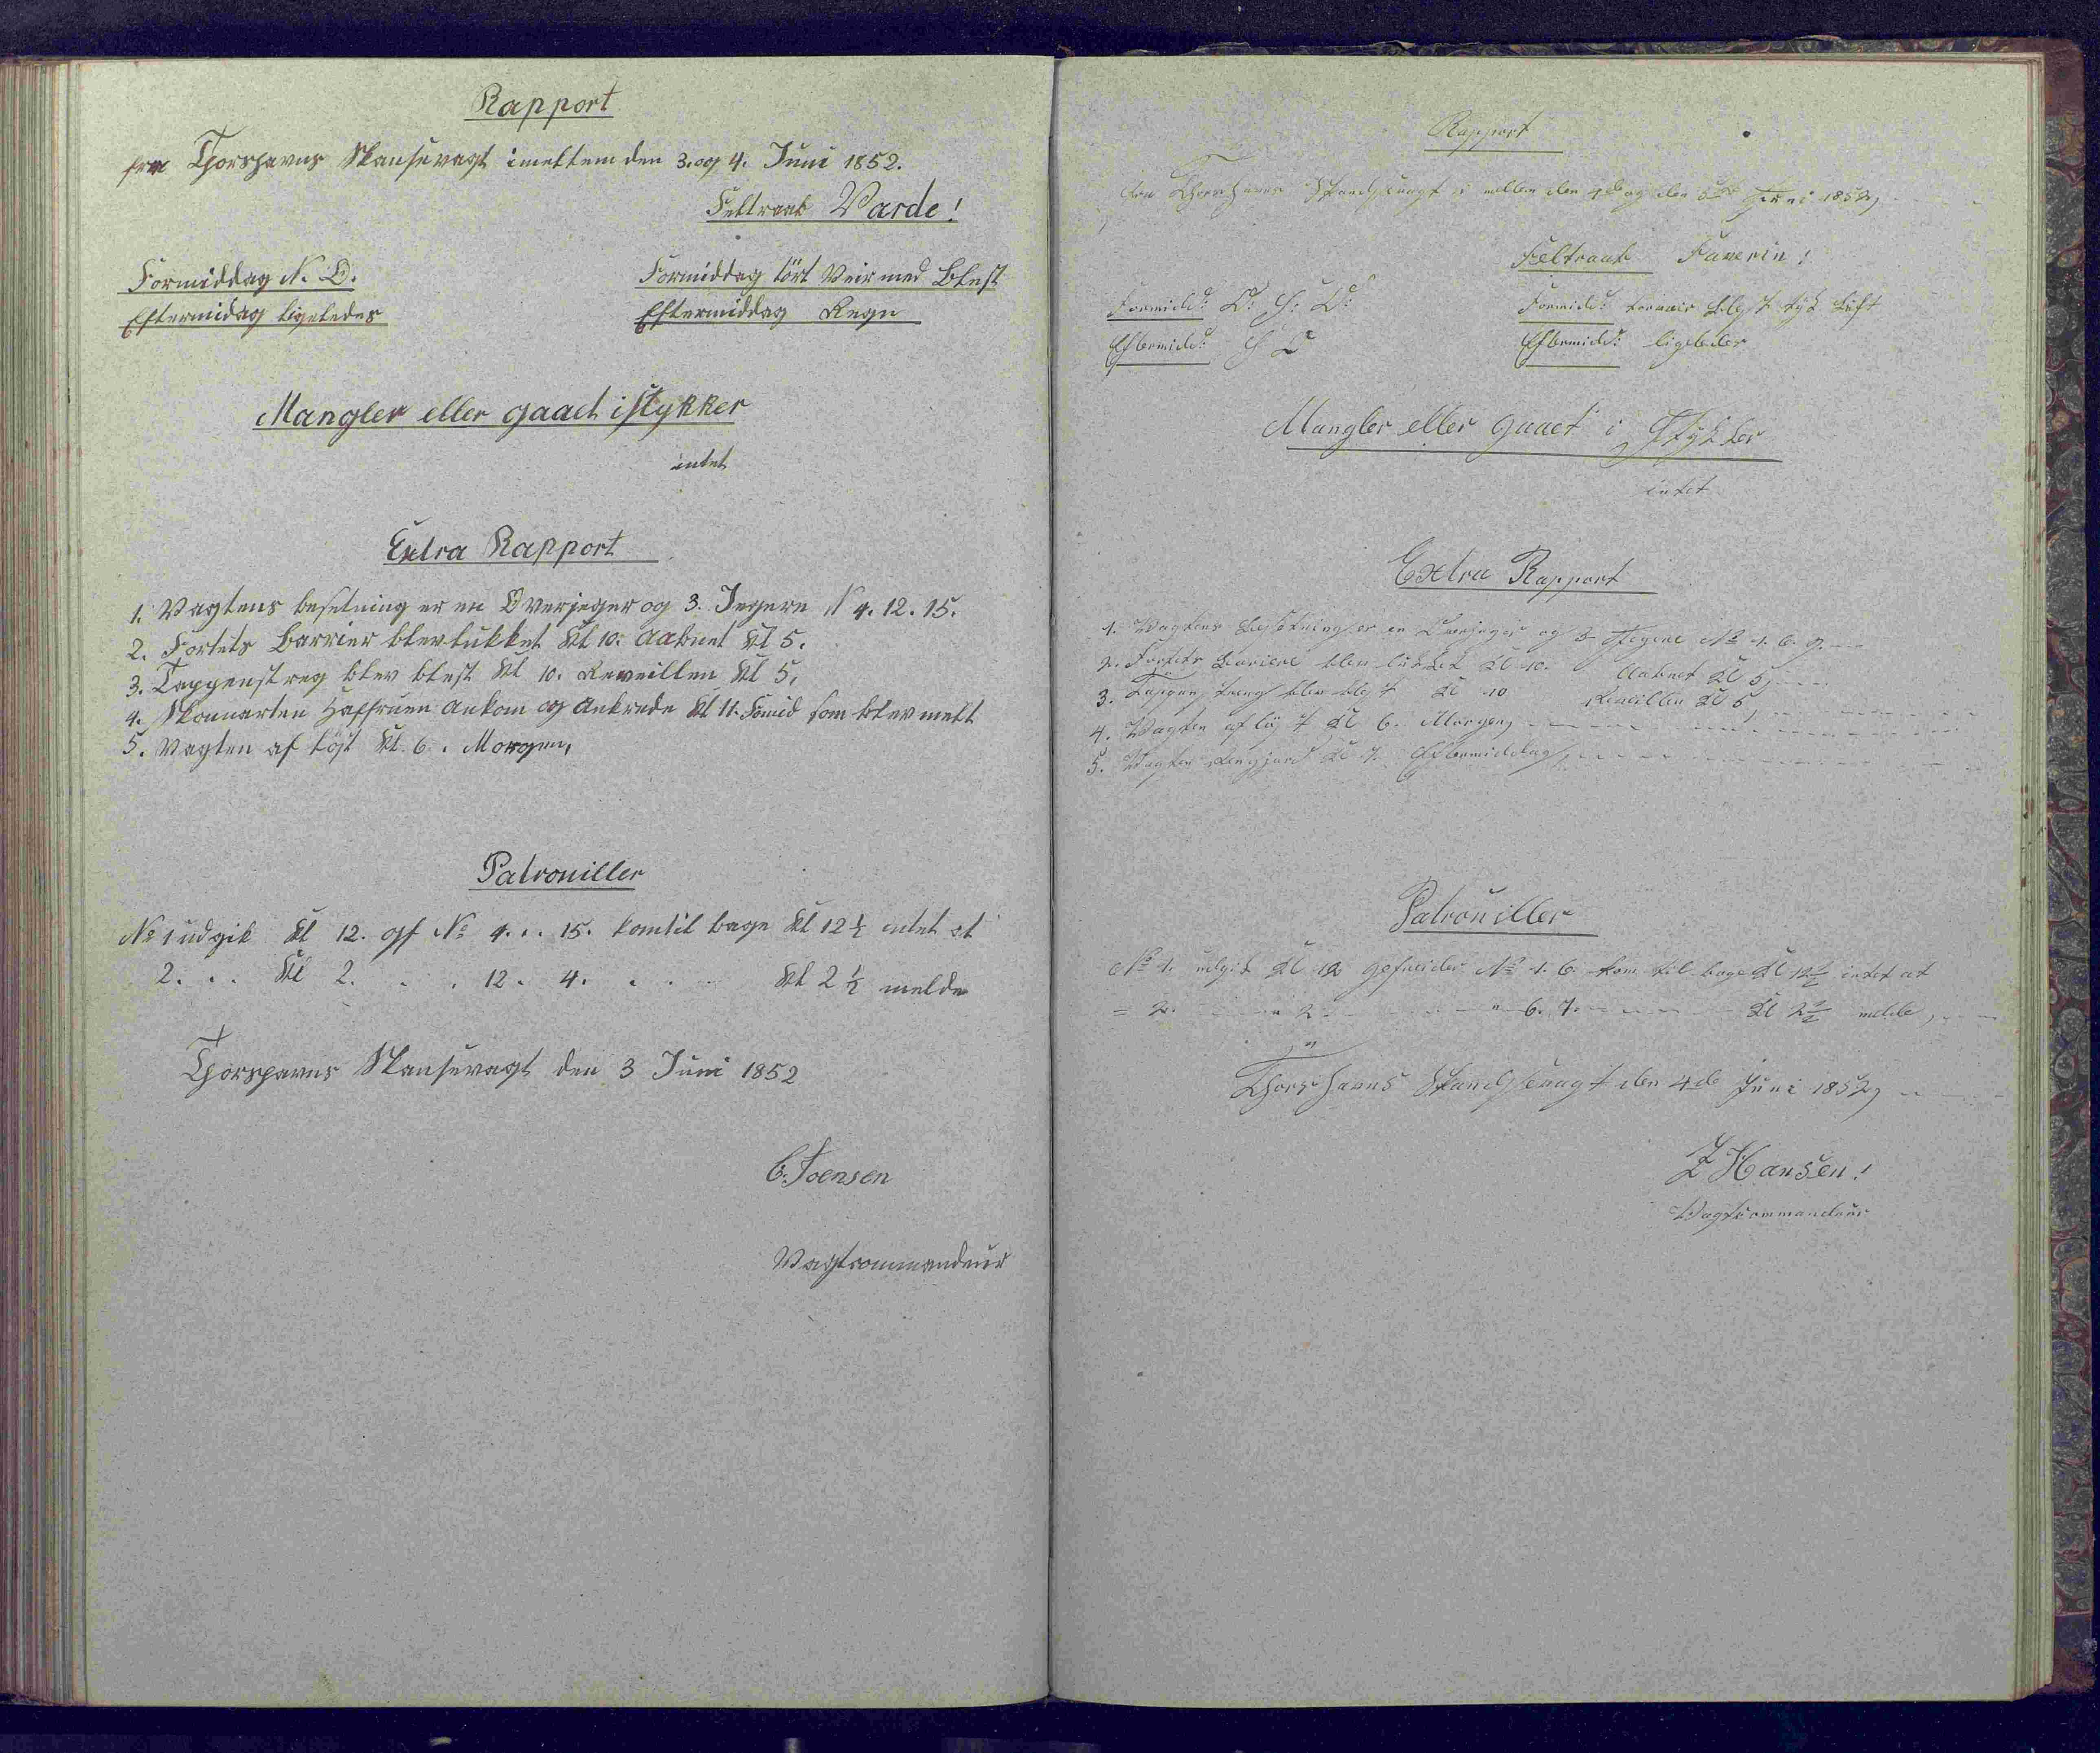 Rapport
fra Thorshavns Skansevagt imellem den 3. og 4. Juni 1852.
Feltraab Varde!
Formiddag N. O.
Eftermidag ligeledes
Formiddag tört Veir med Blest
Eftermiddag Regn
Mangler eller gaaet istykker
intet
Extra Rapport
1. Vagtens besetning er en Overjeger og 3. Jegere N 4. 12. 15.
2. Fortets Barrier blev lukket Kl 10. Aabnet Kl 5.
3. Tappenstreg blev blest Kl 10. Reveillen Kl 5.
4. Skonnarten Haffruen Ankom og Ankrede Kl 11. Fomid som blev melt
5. Vagten af löst Kl. 6. Morgen,
Patrouiller
No 1 udgik Kl 12. gf No 4. . . 15. kom til bage Kl 12½ intet at
2. . . Kl 2. . . . 12. 4. . . . Kl 2½ melde
Thorshavns Skansevagt den 3 Juni 1852
Joensen
Vagtcommandeur
Rapport
fra Thorshavns Skandsevagt i mellem den 4de og den 5te Juni 1852,
Feltraab Faverin!
Formidd: O: S: O:
Eftermidd: S O
Formidd: torveir blest tyk Luft
Eftermidd: ligeledes
Mangler eller gaaet i Stykker
intet
Extra Rapport
1. Vagtens Besætning er en Overjæger og 3 Jegere No 1. 6. 7.
2. Fortets Bariere blev lukket Kl 10. Aabnet Kl 5,
3. Tappenstreg blev blest Kl 10 Reveillen Kl 5,
4. Vagten aflöst Kl 6. Morgen,
5. Vagten Rengjort Kl 7. Eftermiddag,
Patrouiller
No 1. udgik Kl 12 gefreider No 1. 6. kom til bage Kl 12½ intet at
= 2. " 2 " 6. 7. Kl 2½ melde,
Thorshavns Skandsevagt den 4de Juni 1852,
Z Hansen!
Vagtcommandeur